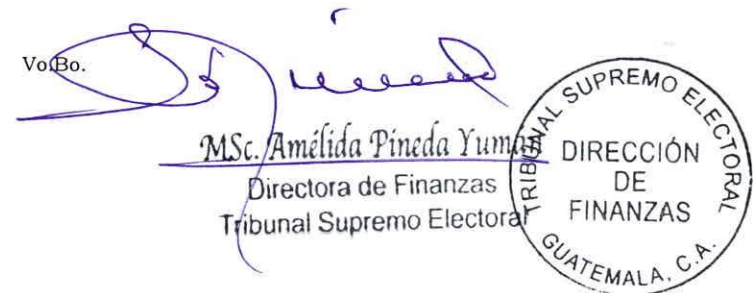 Vo.Bo.
MSc. Amélida Pineda Yumán
Directora de Finanzas
Tribunal Supremo Electoral
TRIBUNAL SUPREMO ELECTORAL
DIRECCIÓN
DE
FINANZAS
GUATEMALA, C.A.